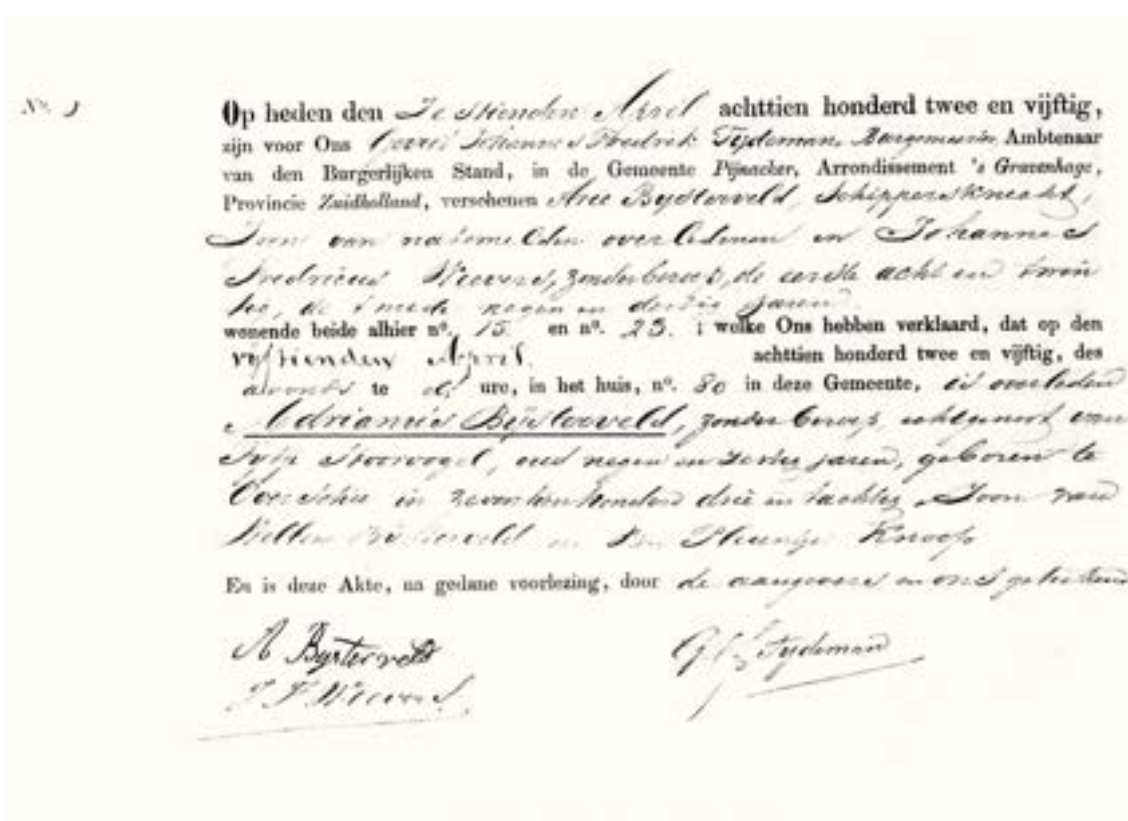 Op heden den Zestienden April achttien honderd twee en vijftig,
zijn voor Ons Gerrit Johannes Fredrik Tydeman, Burgemeester Ambtenaar
van den Burgerlijken Stand, in de Gemeente Pijnacker, Arrondissement 's Gravenhage,
Provincie Zuidholland, verschenen Arie Bysterveld, Schippersknecht,
Zoon van natemelden overledenen en Johannes
Fredricus Weevers, zonder beroep, de eerste acht en twin
tig, de tweede negen en dertig jaren
wonende beide alhier no. 15 en no. 23. ; welke Ons hebben verklaard, dat op den
vyftienden April achttien honderd twee en vijftig, des
avonds te ure, in het huis, no. 80 in deze Gemeente, is overleden
Adrianus Bijsterveld, zonder beroep, echtgenoot van
oud negen en zestig jaren, geboren te
Overschie in zeventienhonderd drie en tachtig, Zoon van
Bijsterveld en Knoop
En is deze Akte, na gedane voorlezing, door de aangevers en ons geteekend
A Bysterveld
G J F Tydeman
J F Weevers